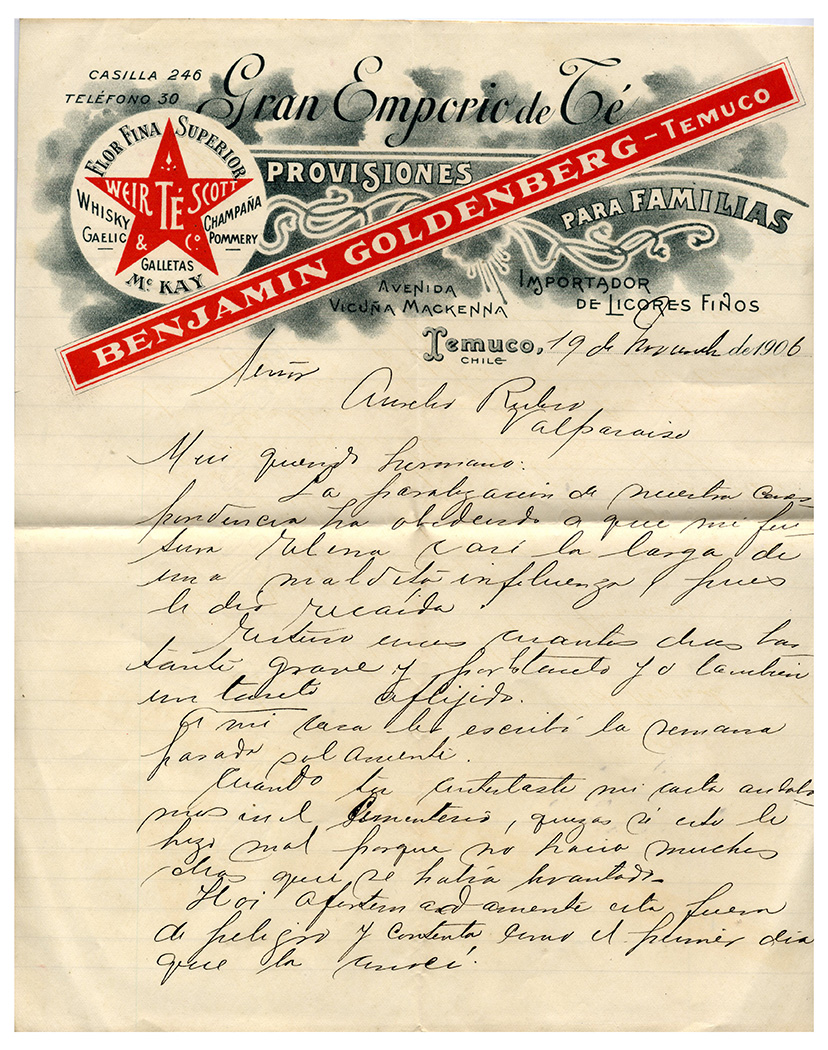 CASILLA 246
TELÉFONO 30
Gran Emporio de Té
FLOR FINA SUPERIOR
WEIR TÉ SCOTT
& Cº
WHISKY
GAELIC
CHAMPAÑA
POMMERY
GALLETAS
Mc KAY
PROVISIONES
PARA FAMILIAS
BENJAMIN GOLDENBERG - TEMUCO
AVENIDA
VICUÑA MACKENNA
IMPORTADOR
DE LICORES FINOS
Temuco, 19 de de 1906
CHILE
Señor
Aurelio Rubio
Valparaiso
Mui querido hermano:
La paralización de nuestra corres
pondencia ha obedecido a que mi fu
tura Elena casi la larga de
una maldita influenza, pues
le dió recaída.
Estuvo unos cuantos dias bas
tante grave y por lo tanto yo tambien
un tanto aflijido.
A mi casa le escribí la semana
pasada solamente.
Cuando tu contestaste mi carta andaba
mos en el Cementerio, quizas si esto le
hizo mal porque no hacia muchos
dias que se habia levantado
Hoi afortunadamente esta fuera
de peligro y contenta como el primer dia
que la conocí.